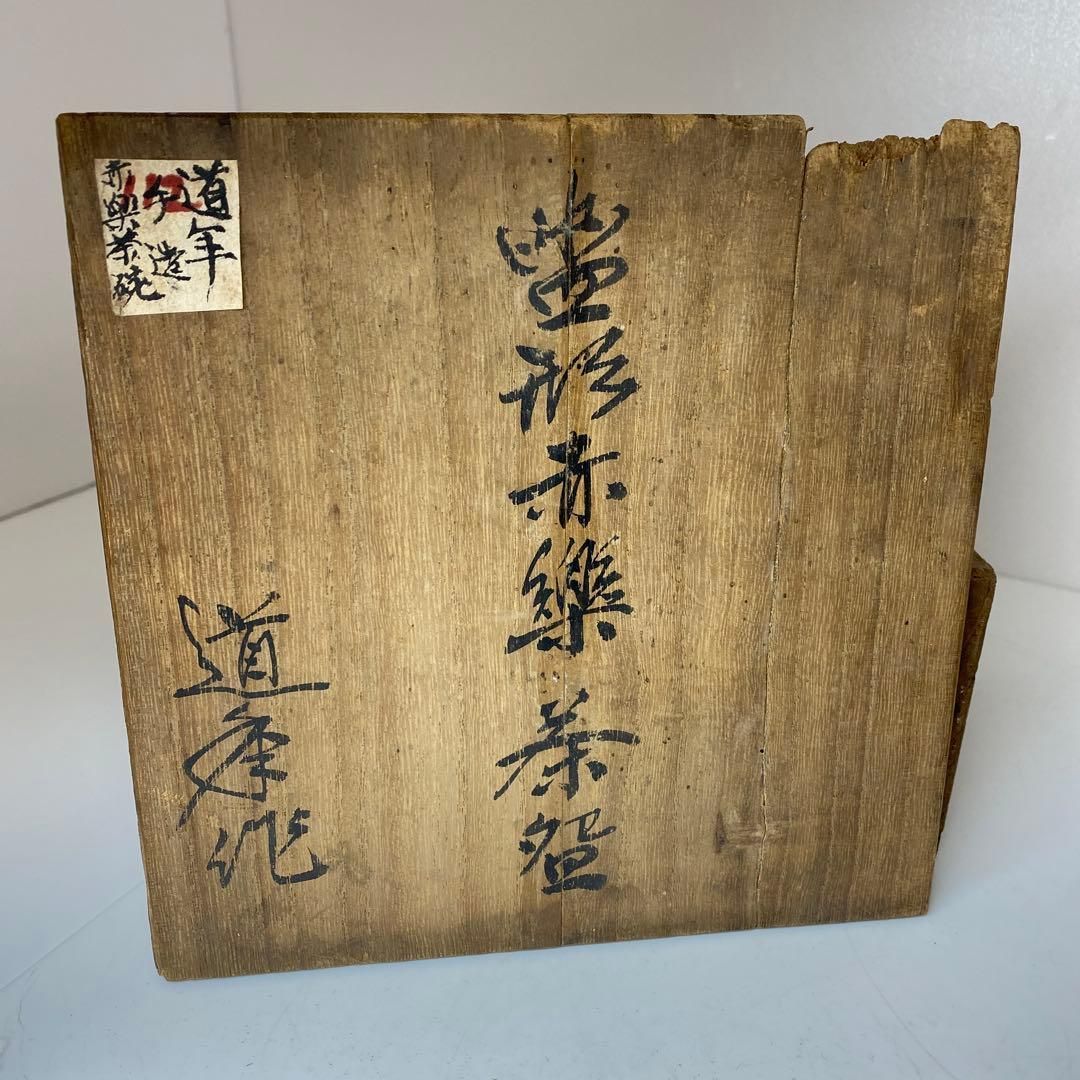 形赤樂茶盌
道年作
道年
造
赤樂茶碗